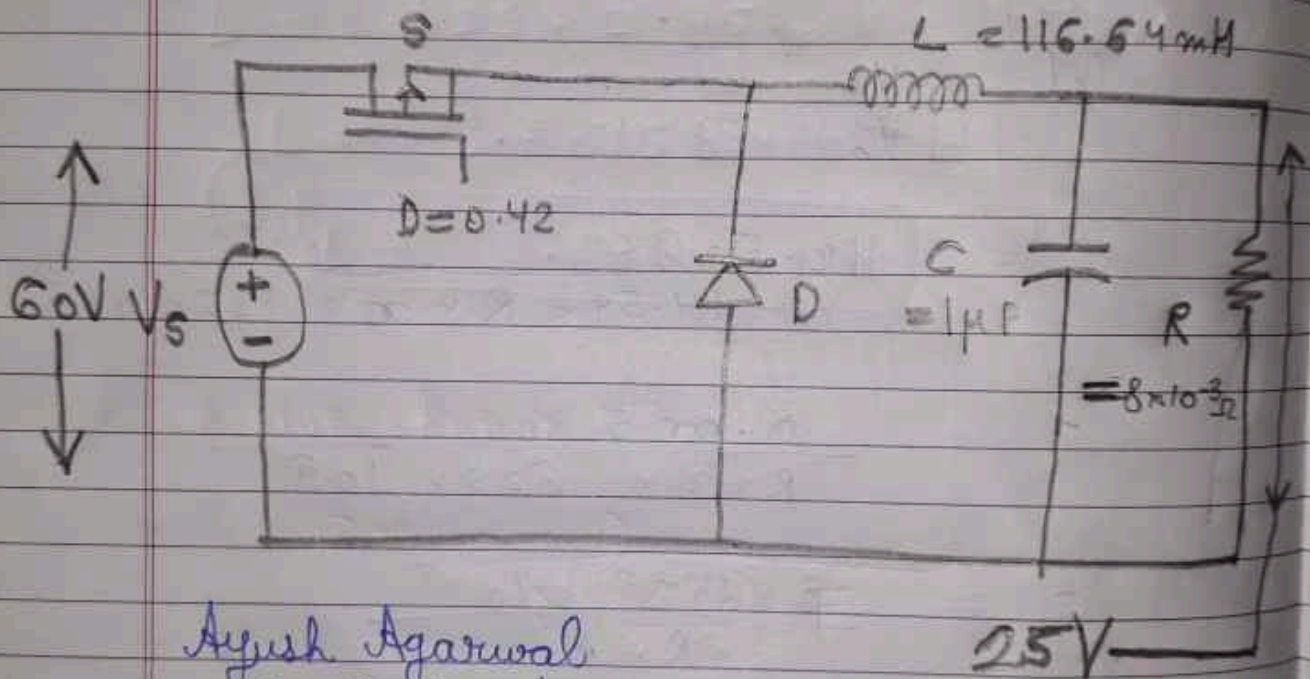 S
L = 116.64mH
D=0.42
60V Vs
+
-
D
C
=1µF
R
=8x10⁻³Ω
Ayush Agarwal
25V